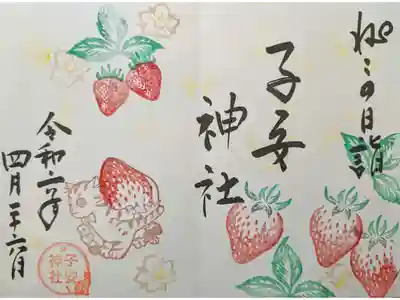 ねこの日詣
子安
神社
令和二年
四月二十六日
子安
神社